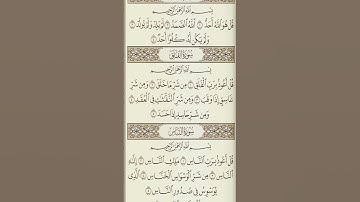 بِسْمِ ٱللَّهِ ٱلرَّحْمَٰنِ ٱلرَّحِيمِ
قُلْ هُوَ ٱللَّهُ أَحَدٌ ١ ٱللَّهُ ٱلصَّمَدُ ٢ لَمْ يَلِدْ وَلَمْ يُولَدْ ٣
وَلَمْ يَكُن لَّهُۥ كُفُوًا أَحَدٌۢ ٤
سُورَةُ الفَلَقِ
بِسْمِ ٱللَّهِ ٱلرَّحْمَٰنِ ٱلرَّحِيمِ
قُلْ أَعُوذُ بِرَبِّ ٱلْفَلَقِ ١ مِن شَرِّ مَا خَلَقَ ٢ وَمِن شَرِّ
غَاسِقٍ إِذَا وَقَبَ ٣ وَمِن شَرِّ ٱلنَّفَّٰثَٰتِ فِى ٱلْعُقَدِ ٤
وَمِن شَرِّ حَاسِدٍ إِذَا حَسَدَ ٥
سُورَةُ النَّاسِ
بِسْمِ ٱللَّهِ ٱلرَّحْمَٰنِ ٱلرَّحِيمِ
قُلْ أَعُوذُ بِرَبِّ ٱلنَّاسِ ١ مَلِكِ ٱلنَّاسِ ٢ إِلَٰهِ
ٱلنَّاسِ ٣ مِن شَرِّ ٱلْوَسْوَاسِ ٱلْخَنَّاسِ ٤ ٱلَّذِى
يُوَسْوِسُ فِى صُدُورِ ٱلنَّاسِ ٥